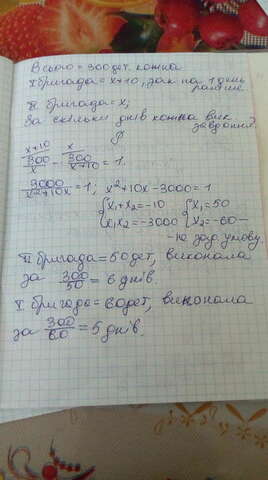 Всього = 300 дет. кожна
I бригада = x+10, зак на 1 день
раніше
II бригада = x;
За скільки днів кожна вик
завдання?
x+10 x
300/x - 300/x+10 = 1.
3000/x²+10x = 1; x²+10x-3000=1
x₁+x₂=-10 x₁=50
x₁x₂=-3000 x₂=-60-
-не зад. умову.
II бригада = 50 дет, виконала
за 300/50 = 6 днів.
I бригада = 60 дет, виконала
за 300/60 = 5 днів.